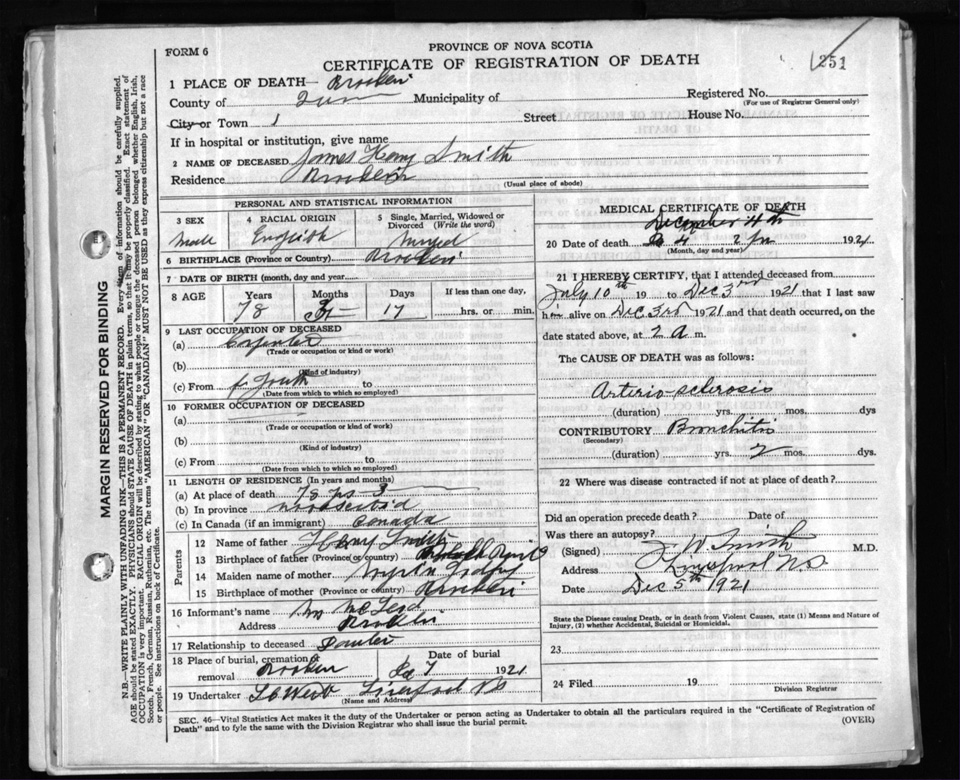 251
FORM 6
PROVINCE OF NOVA SCOTIA
CERTIFICATE OF REGISTRATION OF DEATH
1 PLACE OF DEATH—
County of Municipality of Registered No.
(For use of Registrar General only)
City or Town 1 Street House No.
If in hospital or institution, give name
2 NAME OF DECEASED James Henry Smith
Residence
(Usual place of abode)
PERSONAL AND STATISTICAL INFORMATION
3 SEX 4 RACIAL ORIGIN 5 Single, Married, Widowed or Divorced (Write the word)
Male English
6 BIRTHPLACE (Province or Country)
7 DATE OF BIRTH (month, day and year)
8 AGE Years Months Days If less than one day,
78 17 hrs. or min.
9 LAST OCCUPATION OF DECEASED
(a) Carpenter
(Trade or occupation or kind or work)
(b)
(Kind of industry)
(c) From Youth to
(Date from which to which so employed)
10 FORMER OCCUPATION OF DECEASED
(a)
(Trade or occupation or kind of work)
(b)
(Kind of industry)
(c) From to
(Date from which to which so employed)
11 LENGTH OF RESIDENCE (In years and months)
(a) At place of death 78 3
(b) In province
(c) In Canada (if an immigrant) Canada
Parents
12 Name of father Henry Smith
13 Birthplace of father (Province or country)
14 Maiden name of mother
15 Birthplace of mother (Province or country)
16 Informant's name
Address
17 Relationship to deceased
18 Place of burial, cremation or removal Date of burial
7 1921
19 Undertaker Liverpool NS
(Name and Address)
MEDICAL CERTIFICATE OF DEATH
December 4th
20 Date of death 4 2 1921
(Month, day and year)
21 I HEREBY CERTIFY, that I attended deceased from
July 10th 19 to Dec 3rd 1921 that I last saw
him alive on Dec 3rd 1921 and that death occurred, on the
date stated above, at 2 a m.
The CAUSE OF DEATH was as follows:
Arterio-sclerosis
(duration) yrs. mos. dys
CONTRIBUTORY Bronchitis
(Secondary)
(duration) yrs. 2 mos. dys.
22 Where was disease contracted if not at place of death?
Did an operation precede death? Date of
Was there an autopsy?
(Signed) J. W. Smith M.D.
Address Liverpool N.S.
Date Dec 5th 1921
State the Disease causing Death, or in death from Violent Causes, state (1) Means and Nature of Injury, (2) whether Accidental, Suicidal or Homicidal.
23
24 Filed 19
Division Registrar
SEC. 46—Vital Statistics Act makes it the duty of the Undertaker or person acting as Undertaker to obtain all the particulars required in the "Certificate of Registration of
Death" and to fyle the same with the Division Registrar who shall issue the burial permit. (OVER)
MARGIN RESERVED FOR BINDING
N.B.—WRITE PLAINLY WITH UNFADING INK—THIS IS A PERMANENT RECORD. Every item of information should be carefully supplied.
AGE should be stated EXACTLY. PHYSICIANS should STATE CAUSE OF DEATH in plain terms, so that it may be properly classified. Exact statement of
OCCUPATION is very important. RACIAL ORIGIN will be described by stating to what people or tongue the deceased person belonged whether English, Irish,
Scotch, French, German, Russian, Ruthenian, etc. The terms "AMERICAN" or "CANADIAN" MUST NOT BE USED as they express citizenship but not a race
or people. See instructions on back of Certificate.